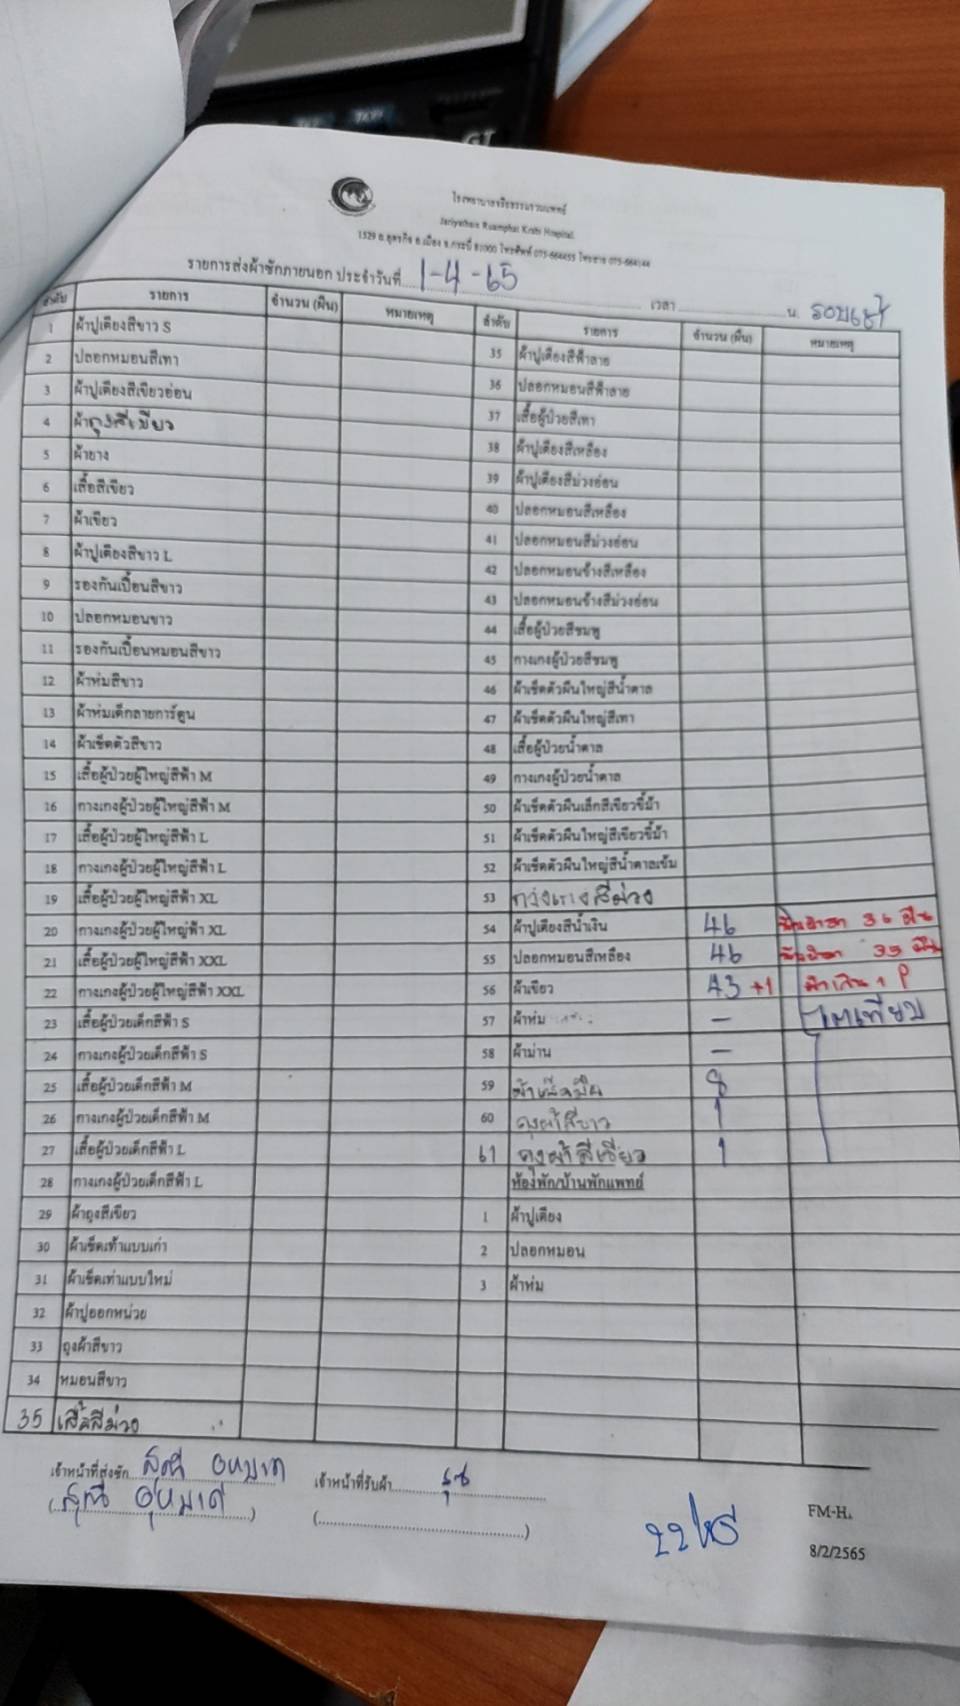 โรงพยาบาลจริยธรรมรวมแพทย์
Jariyatham Ruamphat Krabi Hospital.
1529 อ.อุตรกิจ อ.เมือง จ.กระบี่ 81000 โทรศัพท์ 075-664455 โทรสาร 075-664144
รายการส่งผ้าซักภายนอก ประจำวันที่ 1-4-65 เวลา น. รอบเช้า
ลำดับ รายการ จำนวน (ผืน) หมายเหตุ ลำดับ รายการ จำนวน (ผืน) หมายเหตุ
1 ผ้าปูเตียงสีขาว S
2 ปลอกหมอนสีเทา
3 ผ้าปูเตียงสีเขียวอ่อน
4 ผ้าถุงสีเขียว
5 ผ้ายาง
6 เสื้อสีเขียว
7 ผ้าเขียว
8 ผ้าปูเตียงสีขาว L
9 รองกันเปื้อนสีขาว
10 ปลอกหมอนขาว
11 รองกันเปื้อนหมอนสีขาว
12 ผ้าห่มสีขาว
13 ผ้าห่มเด็กลายการ์ตูน
14 ผ้าเช็ดตัวสีขาว
15 เสื้อผู้ป่วยผู้ใหญ่สีฟ้า M
16 กางเกงผู้ป่วยผู้ใหญ่สีฟ้า M
17 เสื้อผู้ป่วยผู้ใหญ่สีฟ้า L
18 กางเกงผู้ป่วยผู้ใหญ่สีฟ้า L
19 เสื้อผู้ป่วยผู้ใหญ่สีฟ้า XL
20 กางเกงผู้ป่วยผู้ใหญ่ฟ้า XL
21 เสื้อผู้ป่วยผู้ใหญ่สีฟ้า XXL
22 กางเกงผู้ป่วยผู้ใหญ่สีฟ้า XXL
23 เสื้อผู้ป่วยเด็กสีฟ้า S
24 กางเกงผู้ป่วยเด็กสีฟ้า S
25 เสื้อผู้ป่วยเด็กสีฟ้า M
26 กางเกงผู้ป่วยเด็กสีฟ้า M
27 เสื้อผู้ป่วยเด็กสีฟ้า L
28 กางเกงผู้ป่วยเด็กสีฟ้า L
29 ผ้าถุงสีเขียว
30 ผ้าเช็ดเท้าแบบเก่า
31 ผ้าเช็ดเท้าแบบใหม่
32 ผ้าปูออกหน่วย
33 ถุงผ้าสีขาว
34 หมอนสีขาว
35 เสื้อสีม่วง
35 ผ้าปูเตียงสีฟ้าลาย
36 ปลอกหมอนสีฟ้าลาย
37 เสื้อผู้ป่วยสีเทา
38 ผ้าปูเตียงสีเหลือง
39 ผ้าปูเตียงสีม่วงอ่อน
40 ปลอกหมอนสีเหลือง
41 ปลอกหมอนสีม่วงอ่อน
42 ปลอกหมอนข้างสีเหลือง
43 ปลอกหมอนข้างสีม่วงอ่อน
44 เสื้อผู้ป่วยสีชมพู
45 กางเกงผู้ป่วยสีชมพู
46 ผ้าเช็ดตัวผืนใหญ่สีน้ำตาล
47 ผ้าเช็ดตัวผืนใหญ่สีเทา
48 เสื้อผู้ป่วยน้ำตาล
49 กางเกงผู้ป่วยน้ำตาล
50 ผ้าเช็ดตัวผืนเล็กสีเขียวขี้ม้า
51 ผ้าเช็ดตัวผืนใหญ่สีเขียวขี้ม้า
52 ผ้าเช็ดตัวผืนใหญ่สีน้ำตาลเข้ม
53 กางเกงสีม่วง
54 ผ้าปูเตียงสีน้ำเงิน 46 36 ผืน
55 ปลอกหมอนสีเหลือง 46 35 ผืน
56 ผ้าเขียว 43 +1 ผ้าเกิน 1 P
57 ผ้าห่ม - ไตเทียม
58 ผ้าม่าน -
59 ผ้าเช็ดมือ 8
60 ถุงผ้าสีขาว 1
61 ถุงผ้าสีเขียว 1
ห้องพัก/บ้านพักแพทย์
1 ผ้าปูเตียง
2 ปลอกหมอน
3 ผ้าห่ม
เจ้าหน้าที่ส่งซัก เจ้าหน้าที่รับผ้า
FM-H
8/2/2565